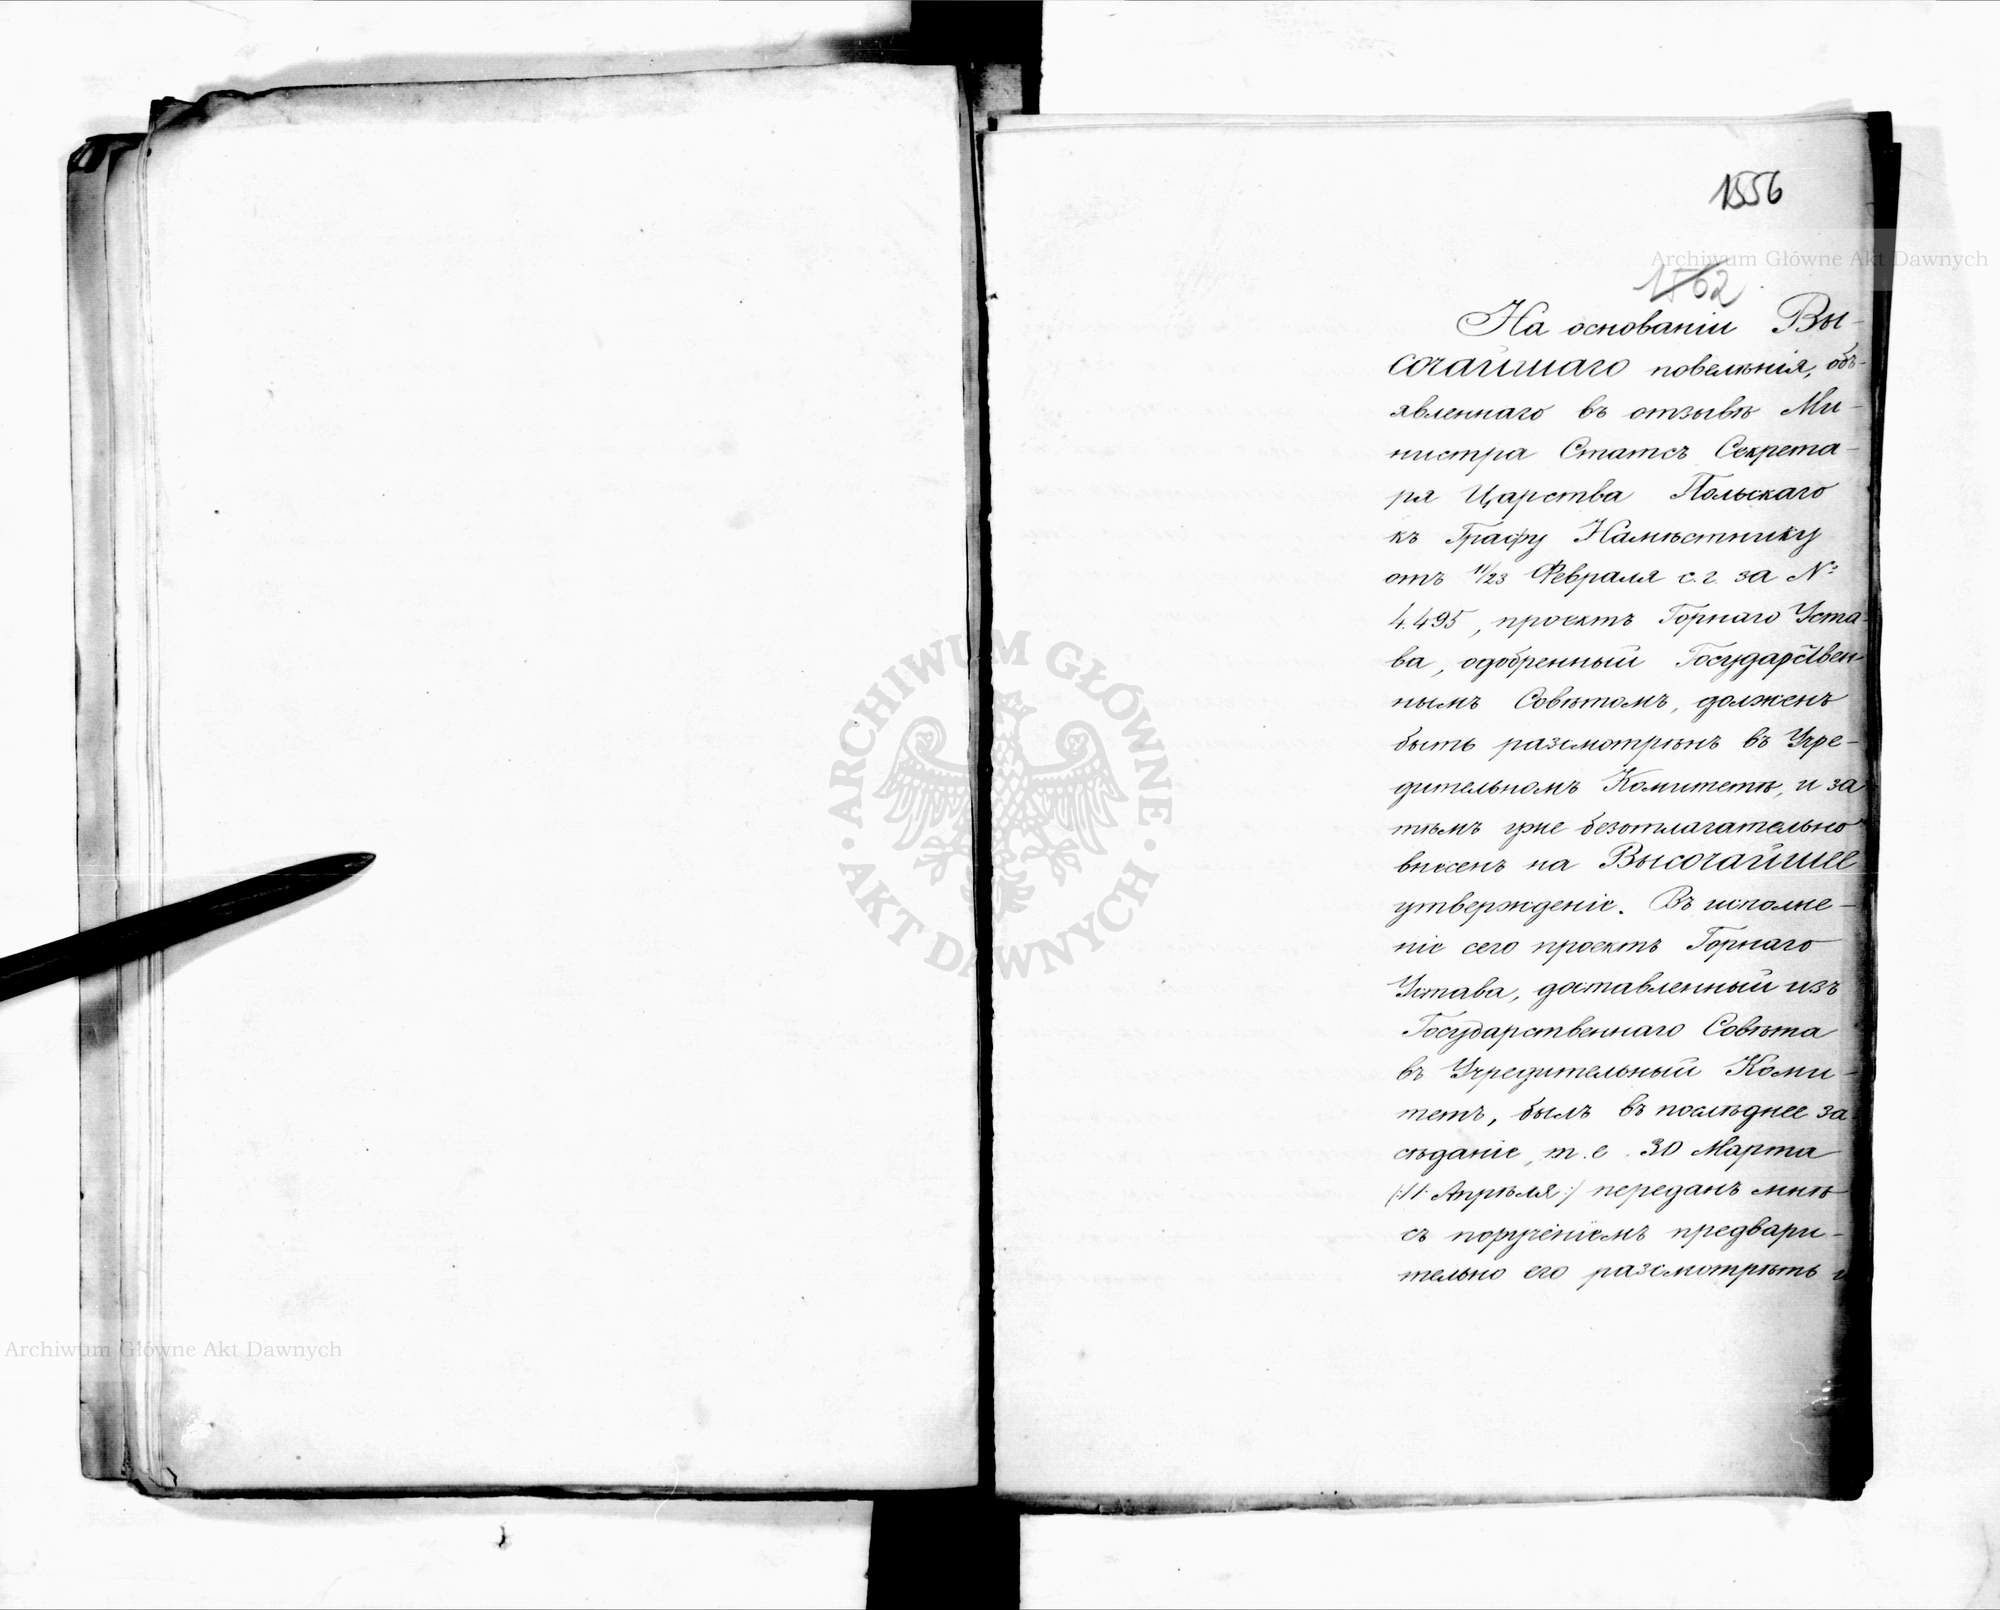 1556
Archiwum Główne Akt Dawnych
1562
На основаніи Вы-
сочайшаго повелѣнія, объ-
явленнаго въ отзывѣ Ми-
нистра Статсъ Секрета-
ря Царства Польскаго
къ Графу Намѣстнику
отъ 11/23 Февраля с. г. за №
4.495, проектъ Горнаго Уста-
ва, одобренный Государствен-
нымъ Совѣтомъ, долженъ
быть разсмотрѣнъ въ Учре-
дительномъ Комитетѣ, и за
тѣмъ уже безотлагательно
внесенъ на Высочайшее
утвержденіе. Въ исполне-
ніе сего проектъ Горнаго
Устава, доставленный изъ
Государственнаго Совѣта
въ Учредительный Коми-
тетъ, былъ въ послѣднее за-
сѣданіе, т. е. 30 Марта
(:11 Апрѣля:) переданъ мнѣ
съ порученіемъ предвари-
тельно его разсмотрѣть и
ARCHIWUM GŁÓWNE AKT DAWNYCH
Archiwum Główne Akt Dawnych